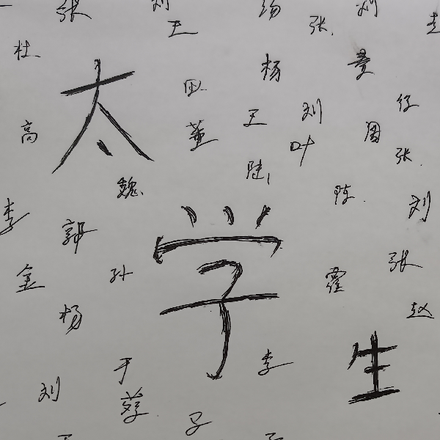 张 刘 王 汤 张 刘
杜
太
田
杨
童
任
高
董
王
刘
周
张
叶
陆
魏
陈
刘
李
郭
学
张
金
孙
霍
赵
杨
于
李
生
刘